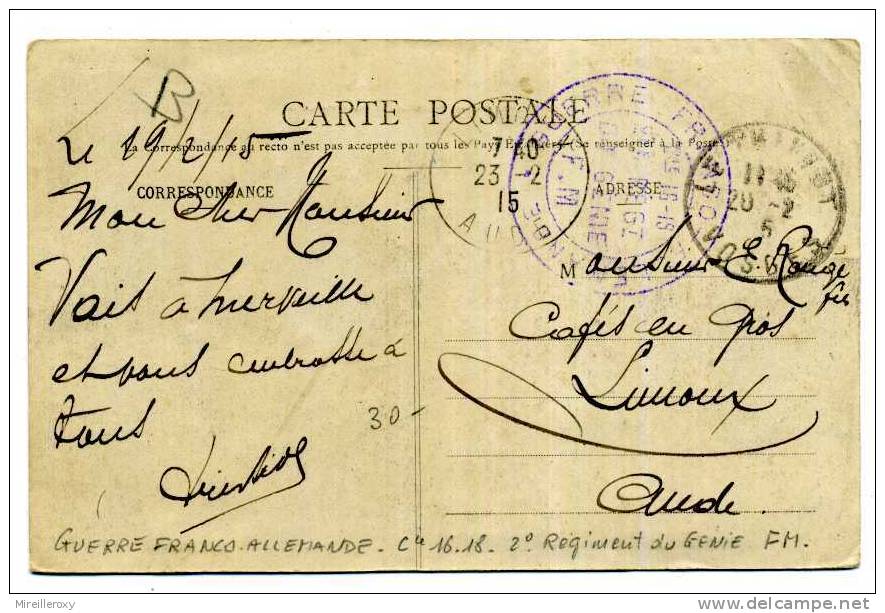 B
Le 19/2/15
CARTE POSTALE
La Correspondance au recto n'est pas acceptée par tous les Pays Etrangers (Se renseigner à la Poste)
CORRESPONDANCE
ADRESSE
7 40
23 -2
15
AUDE
GUERRE FRANCO
Cie 16-18
GENIE
F.M
11 45
20 -2
Mon Cher Monsieur
Vais à merveille
et vous embrasse à
tous
Monsieur E. Rouge
fils
Cafés en Gros
Limoux
Aude
30-
GUERRE FRANCO-ALLEMANDE - Cie 16.18. 2° Régiment du GENIE FM.
Mireilleroxy
www.delcampe.net